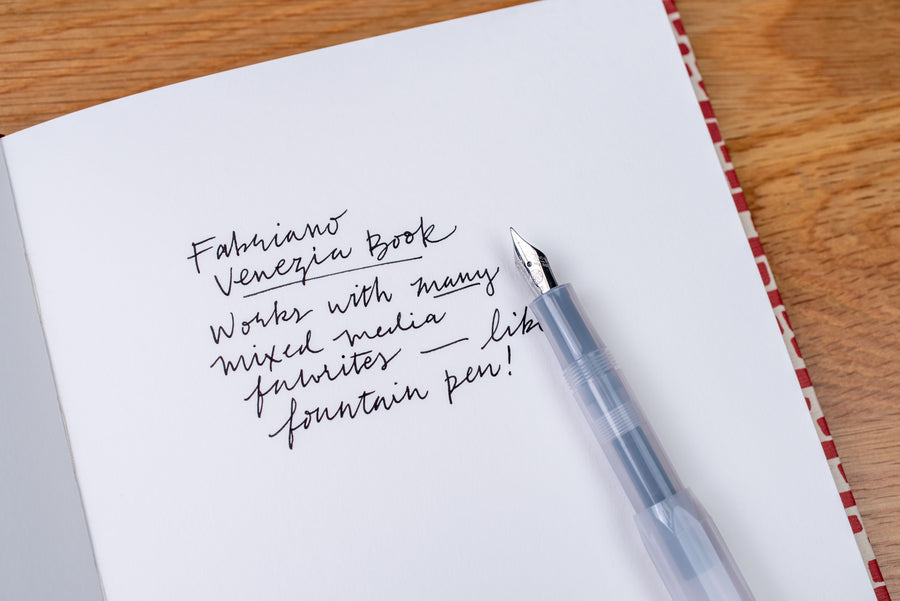 Fabriano
Venezia Book
Works with many
mixed media
favorites — lik
fountain pen!